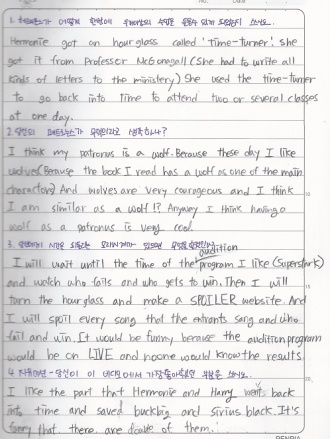 Hermonie got an hourglass called 'Time-turner'. She
got it from Professor McGonagall (She had to write all
kinds of letters to the ministery) She used the time-turner
to go back into time to attend two or several classes
at one day.
2.
I think my patronus is a wolf. Because these day I like
wolves (Because the book I read has a wolf as one of the main
characters) And wolves are very courageous and I think
I am similar as a wolf!? Anyway I think having a
wolf as a patronus is very cool.
3.
audition
I will wait until the time of the program I like (Superstark)
and watch who fails and who gets to win. Then I will
turn the hourglass and make a SPOILER website. And
I will spoil every song that the entrants sang and who
fail and win. It would be funny because the audition program
would be on LIVE and noone would know the results.
I like the part that Hermonie and Harry went back
into time and saved buckbig and sirius black. It's
funny that there are double of them.